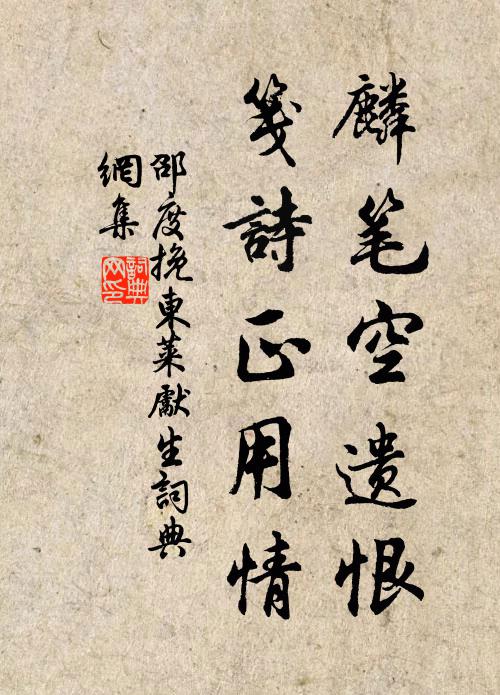 麟笔空遗恨
箋詩正用情
邵度挽東萊獻生詞典
網集
詞典網印